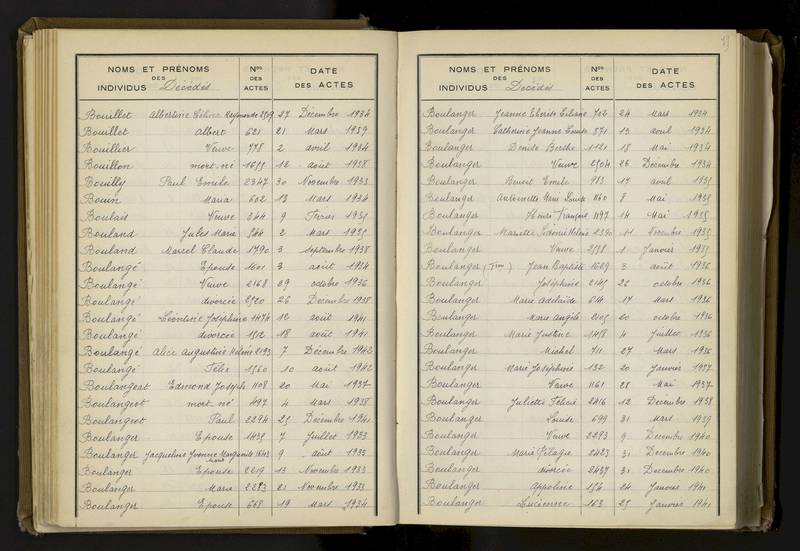 NOMS ET PRÉNOMS
DES
INDIVIDUS Décédés
Nos
DES
ACTES
DATE
DES ACTES
Bouillet Albertine Céline Raymonde 27 Décembre 1934
Bouillet Albert 621 21 Mars 1939
Bouillier Veuve 778 2 avril 1934
Bouillon mort-né 1655 12 août 1938
Bouilly Paul Emile 2347 30 Novembre 1933
Bouin Maria 602 13 Mars 1934
Boulais Veuve 344 9 Février
Bouland Jules Marie 544 2 Mars 1935
Bouland Marcel Claude 1790 3 Septembre 1938
Boulangé Epouse 1601 3 août 1934
Boulangé Veuve 2168 29 octobre 1936
Boulangé divorcée 2520 26 Décembre 1938
Boulangé Léontine Joséphine 1474 12 août 1941
Boulangé divorcée 1512 18 août 1941
Boulangé Alice Augustine 2193 7 Décembre 1942
Boulangé Félix 1560 10 août 1942
Boulangeat Edmond Joseph 1108 20 Mai 1937
Boulangeot mort-né 497 4 Mars 1938
Boulangeot Paul 2294 25 Décembre 1941
Boulanger Epouse 1435 7 Juillet 1933
Boulanger Jacqueline Yvonne Marguerite 1643 9 août 1933
Boulanger Epouse 2219 13 Novembre 1933
Boulanger Marie 2283 21 Novembre 1933
Boulanger Epouse 668 19 Mars 1934
NOMS ET PRÉNOMS
DES
INDIVIDUS Décédés
Nos
DES
ACTES
DATE
DES ACTES
Boulanger Jeanne Liliane 702 24 Mars 1934
Boulanger Catherine Jeanne Louise 871 13 avril 1934
Boulanger Denise Berthe 1121 18 Mai 1934
Boulanger Veuve 2504 26 Décembre 1934
Boulanger Benoit Emile 983 17 avril 1935
Boulanger Antoinette Marie Louise 1160 8 Mai 1935
Boulanger Henri François 1197 14 Mai 1935
Boulanger Mariette 2390 11 Novembre 1935
Boulanger Veuve 1 Janvier 1935
Boulanger Jean Baptiste 1629 3 août 1936
Boulanger Joséphine 2145 26 octobre 1936
Boulanger Marie Adelaïde 614 17 Mars 1936
Boulanger Marie Angèle 2105 20 octobre 1936
Boulanger Marie Justine 1458 4 Juillet 1936
Boulanger Michel 711 27 Mars 1936
Boulanger Marie Joséphine 132 20 Janvier 1937
Boulanger Veuve 1161 28 Mai 1937
Boulanger Juliette Félicie 2416 12 Décembre 1938
Boulanger Louise 699 31 Mars 1939
Boulanger Veuve 2293 9 Décembre 1940
Boulanger Marie Pélagie 2423 31 Décembre 1940
Boulanger divorcée 2437 31 Décembre 1940
Boulanger Appoline 156 24 Janvier 1941
Boulanger Lucienne 163 25 Janvier 1941